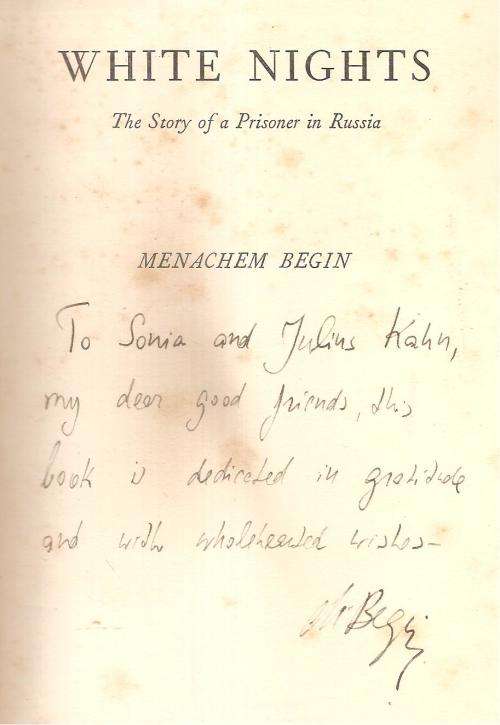 WHITE NIGHTS
The Story of a Prisoner in Russia
MENACHEM BEGIN
To Sonia and Julius Kahn,
my dear good friends, this
book is dedicated in gratitude
and with wholehearted wishes—
M. Begin